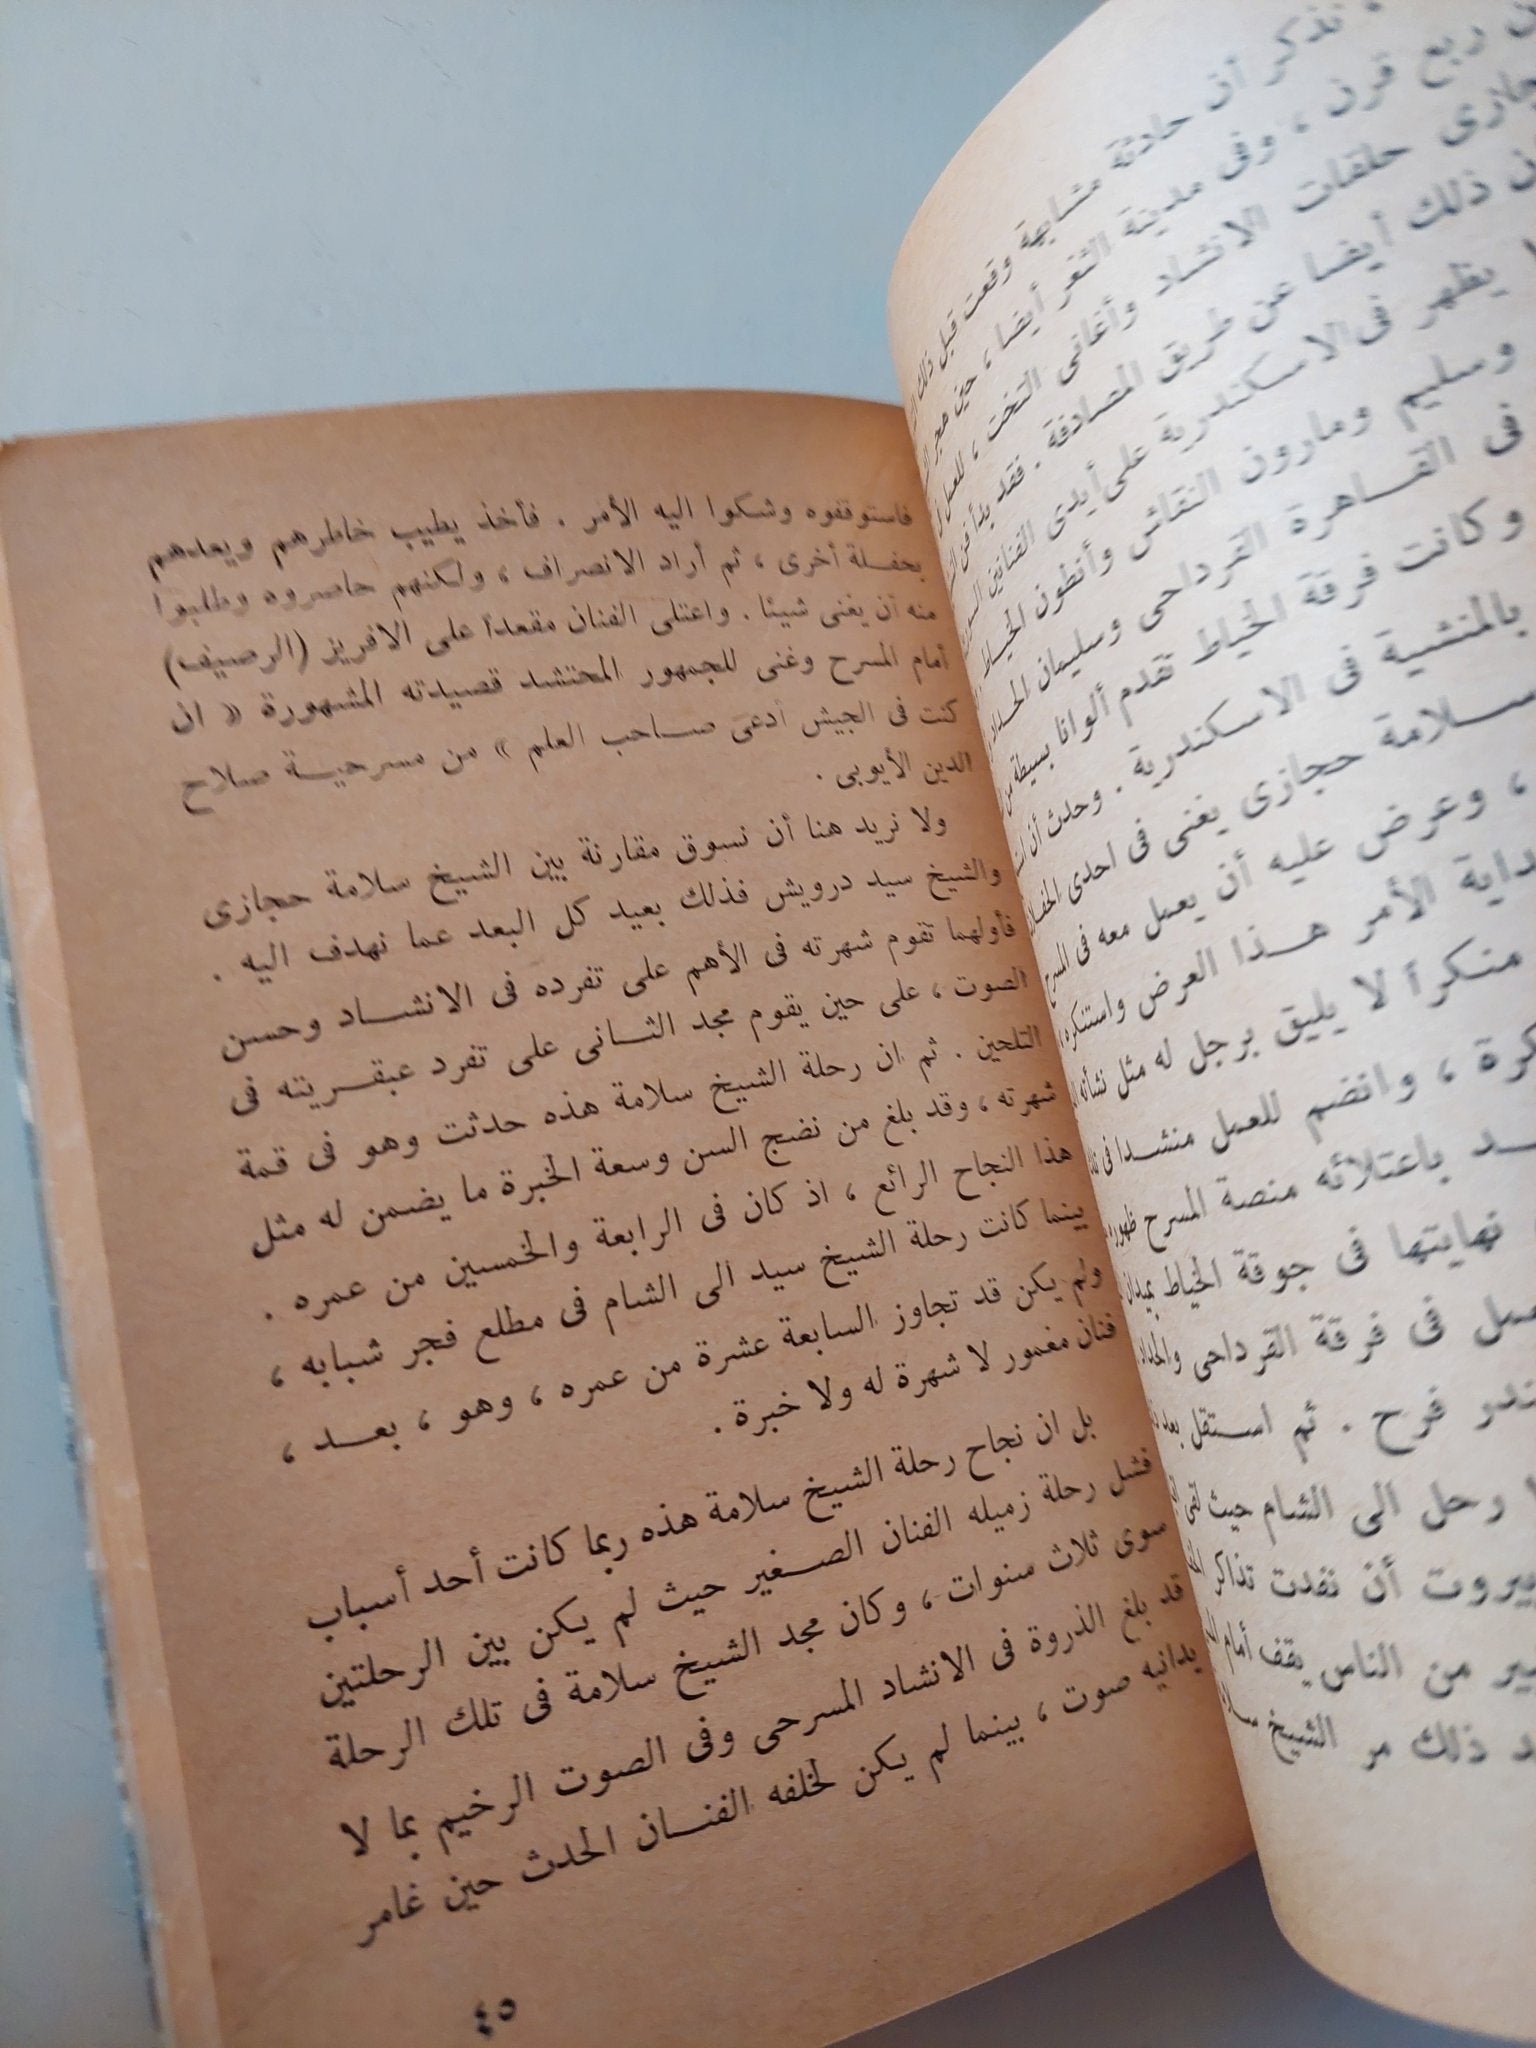 نذكر أن حادثة مشابهة وقعت قبل ذلك
ربع قرن ، وفى مدينة الثغر أيضا ، حين هجر
حلقات الانشاد وأغانى التخت ، للعمل
ذلك أيضا عن طريق المصادفة . فقد بدأ فن
يظهر فى الاسكندرية على أيدى الفنانين
وسليم ومارون النقاش وأنطون الخياط
فى القاهرة القرداحى وسليمان الحداد
وكانت فرقة الخياط تقدم ألوانا بسيطة من
بالمنشية فى الاسكندرية . وحدث أن
سلامة حجازى يغنى فى احدى
، وعرض عليه أن يعمل معه فى المسرح
الأمر هذا العرض واستنكره
منكرا لا يليق برجل له مثل نشأته
، وانضم للعمل منشدا فى
باعتلائه منصة المسرح
نهايتها فى جوقة الخياط بميدان
فى فرقة القرداحى
فرح . ثم استقل بعد
رحل الى الشام حيث لقى
أن نفدت تذاكر
من الناس يقف أمام
ذلك مر الشيخ
فاستوقفوه وشكوا اليه الأمر . فأخذ يطيب خاطرهم ويعدهم
بحفلة أخرى ، ثم أراد الانصراف ، ولكنهم حاصروه وطلبوا
منه أن يغنى شيئا . واعتلى الفنان مقعداً على الافريز (الرصيف)
أمام المسرح وغنى للجمهور المحتشد قصيدته المشهورة « ان
كنت فى الجيش أدعى صاحب العلم » من مسرحية صلاح
الدين الأيوبى .
ولا نريد هنا أن نسوق مقارنة بين الشيخ سلامة حجازى
والشيخ سيد درويش فذلك بعيد كل البعد عما نهدف اليه .
فأولهما تقوم شهرته فى الأهم على تفرده فى الانشاد وحسن
الصوت ، على حين يقوم مجد الثانى على تفرد عبقريته فى
التلحين . ثم ان رحلة الشيخ سلامة هذه حدثت وهو فى قمة
شهرته ، وقد بلغ من نضج السن وسعة الخبرة ما يضمن له مثل
هذا النجاح الرائع ، اذ كان فى الرابعة والخمسين من عمره .
بينما كانت رحلة الشيخ سيد الى الشام فى مطلع فجر شبابه ،
ولم يكن قد تجاوز السابعة عشرة من عمره ، وهو ، بعد ،
فنان مغمور لا شهرة له ولا خبرة .
بل ان نجاح رحلة الشيخ سلامة هذه ربما كانت أحد أسباب
فشل رحلة زميله الفنان الصغير حيث لم يكن بين الرحلتين
سوى ثلاث سنوات ، وكان مجد الشيخ سلامة فى تلك الرحلة
قد بلغ الذروة فى الانشاد المسرحى وفى الصوت الرخيم بما لا
يدانيه صوت ، بينما لم يكن لخلفه الفنان الحدث حين غامر
٤٥